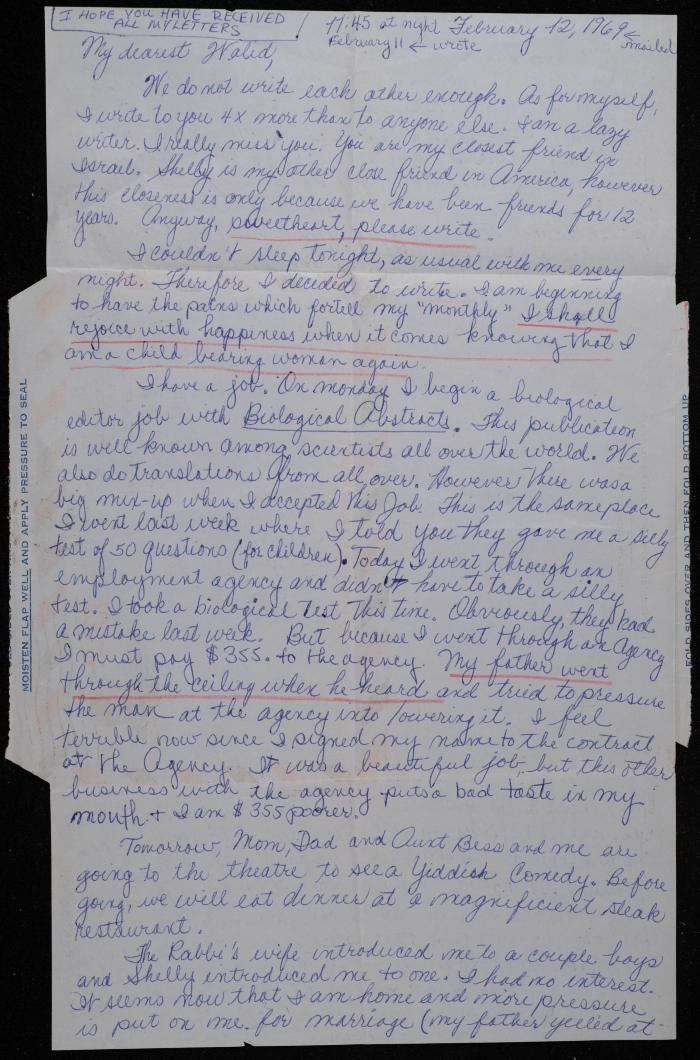 I HOPE YOU HAVE RECEIVED
ALL MY LETTERS
11:45 at night February 12, 1969 ← mailed
February 11 ← wrote
My dearest Walid,
We do not write each other enough. As for myself,
I write to you 4x more than to anyone else. I am a lazy
writer. I really miss you. You are my closest friend in
Israel. Shelly is my other close friend in America, however
this closeness is only because we have been friends for 12
years. Anyway, sweetheart, please write.
I couldn't sleep tonight, as usual with me every
night. Therefore I decided to write. I am beginning
to have the pains which fortell my "monthly" I shall
rejoice with happiness when it comes knowing that I
am a child bearing woman again.
I have a job. On monday I begin a biological
editor job with Biological Abstracts. This publication
is well known among scientists all over the world. We
also do translations from all over. However there was a
big mix-up when I accepted this Job. This is the same place
I went last week where I told you they gave me a silly
test of 50 questions (for children). Today I went through an
employment agency and didn't have to take a silly
test. I took a biological test this time. Obviously, they had
a mistake last week. But because I went through an Agency
I must pay $355. to the agency. My father went
through the ceiling when he heard and tried to pressure
the man at the agency into lowering it. I feel
terrible now since I signed my name to the contract
at the Agency. It was a beautiful job, but this other
business with the agency puts a bad taste in my
mouth + I am $355 poorer.
Tomorrow, Mom, Dad and Aunt Bess and me are
going to the theatre to see a Yiddish Comedy. Before
going, we will eat dinner at a magnificient steak
restaurant.
The Rabbi's wife introduced me to a couple boys
and Shelly introduced me to one. I had no interest.
It seems now that I am home and more pressure
is put on me. for marriage (my father yelled at
MOISTEN FLAP WELL AND APPLY PRESSURE TO SEAL
FOLD SIDES OVER AND THEN FOLD BOTTOM UP